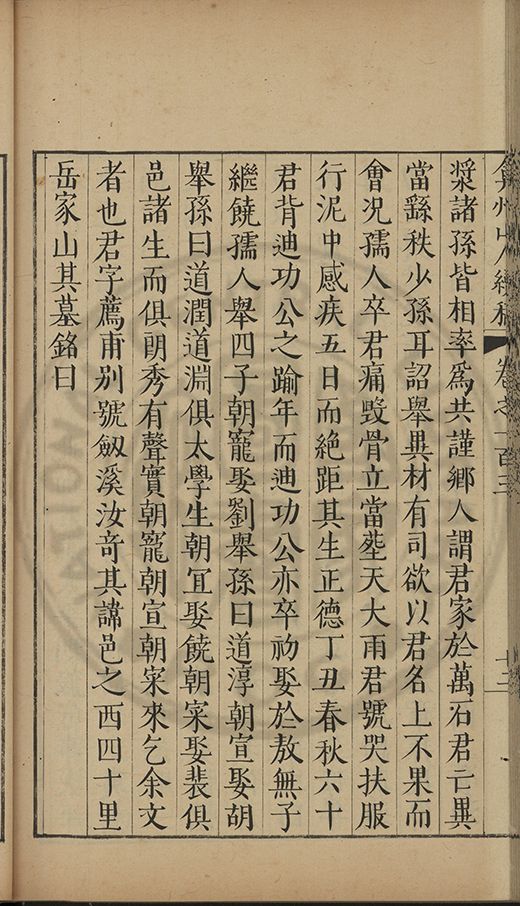 弇州山人續稿 卷之一百三 十三
漿諸孫皆相率爲共謹鄉人謂君家於萬石君亡異
當繇秩少孫耳詔舉異材有司欲以君名上不果而
會況孺人卒君痛毀骨立當塟天大雨君號哭扶服
行泥中感疾五日而絕距其生正德丁丑春秋六十
君背迪功公之踰年而迪功公亦卒初娶於敖無子
繼饒孺人舉四子朝寵娶劉舉孫曰道淳朝宣娶胡
舉孫曰道潤道淵俱太學生朝冝娶饒朝寀娶裴俱
邑諸生而俱朗秀有聲實朝寵朝宣朝寀來乞余文
者也君字薦甫別號劔溪汝奇其諱邑之西四十里
岳家山其墓銘曰